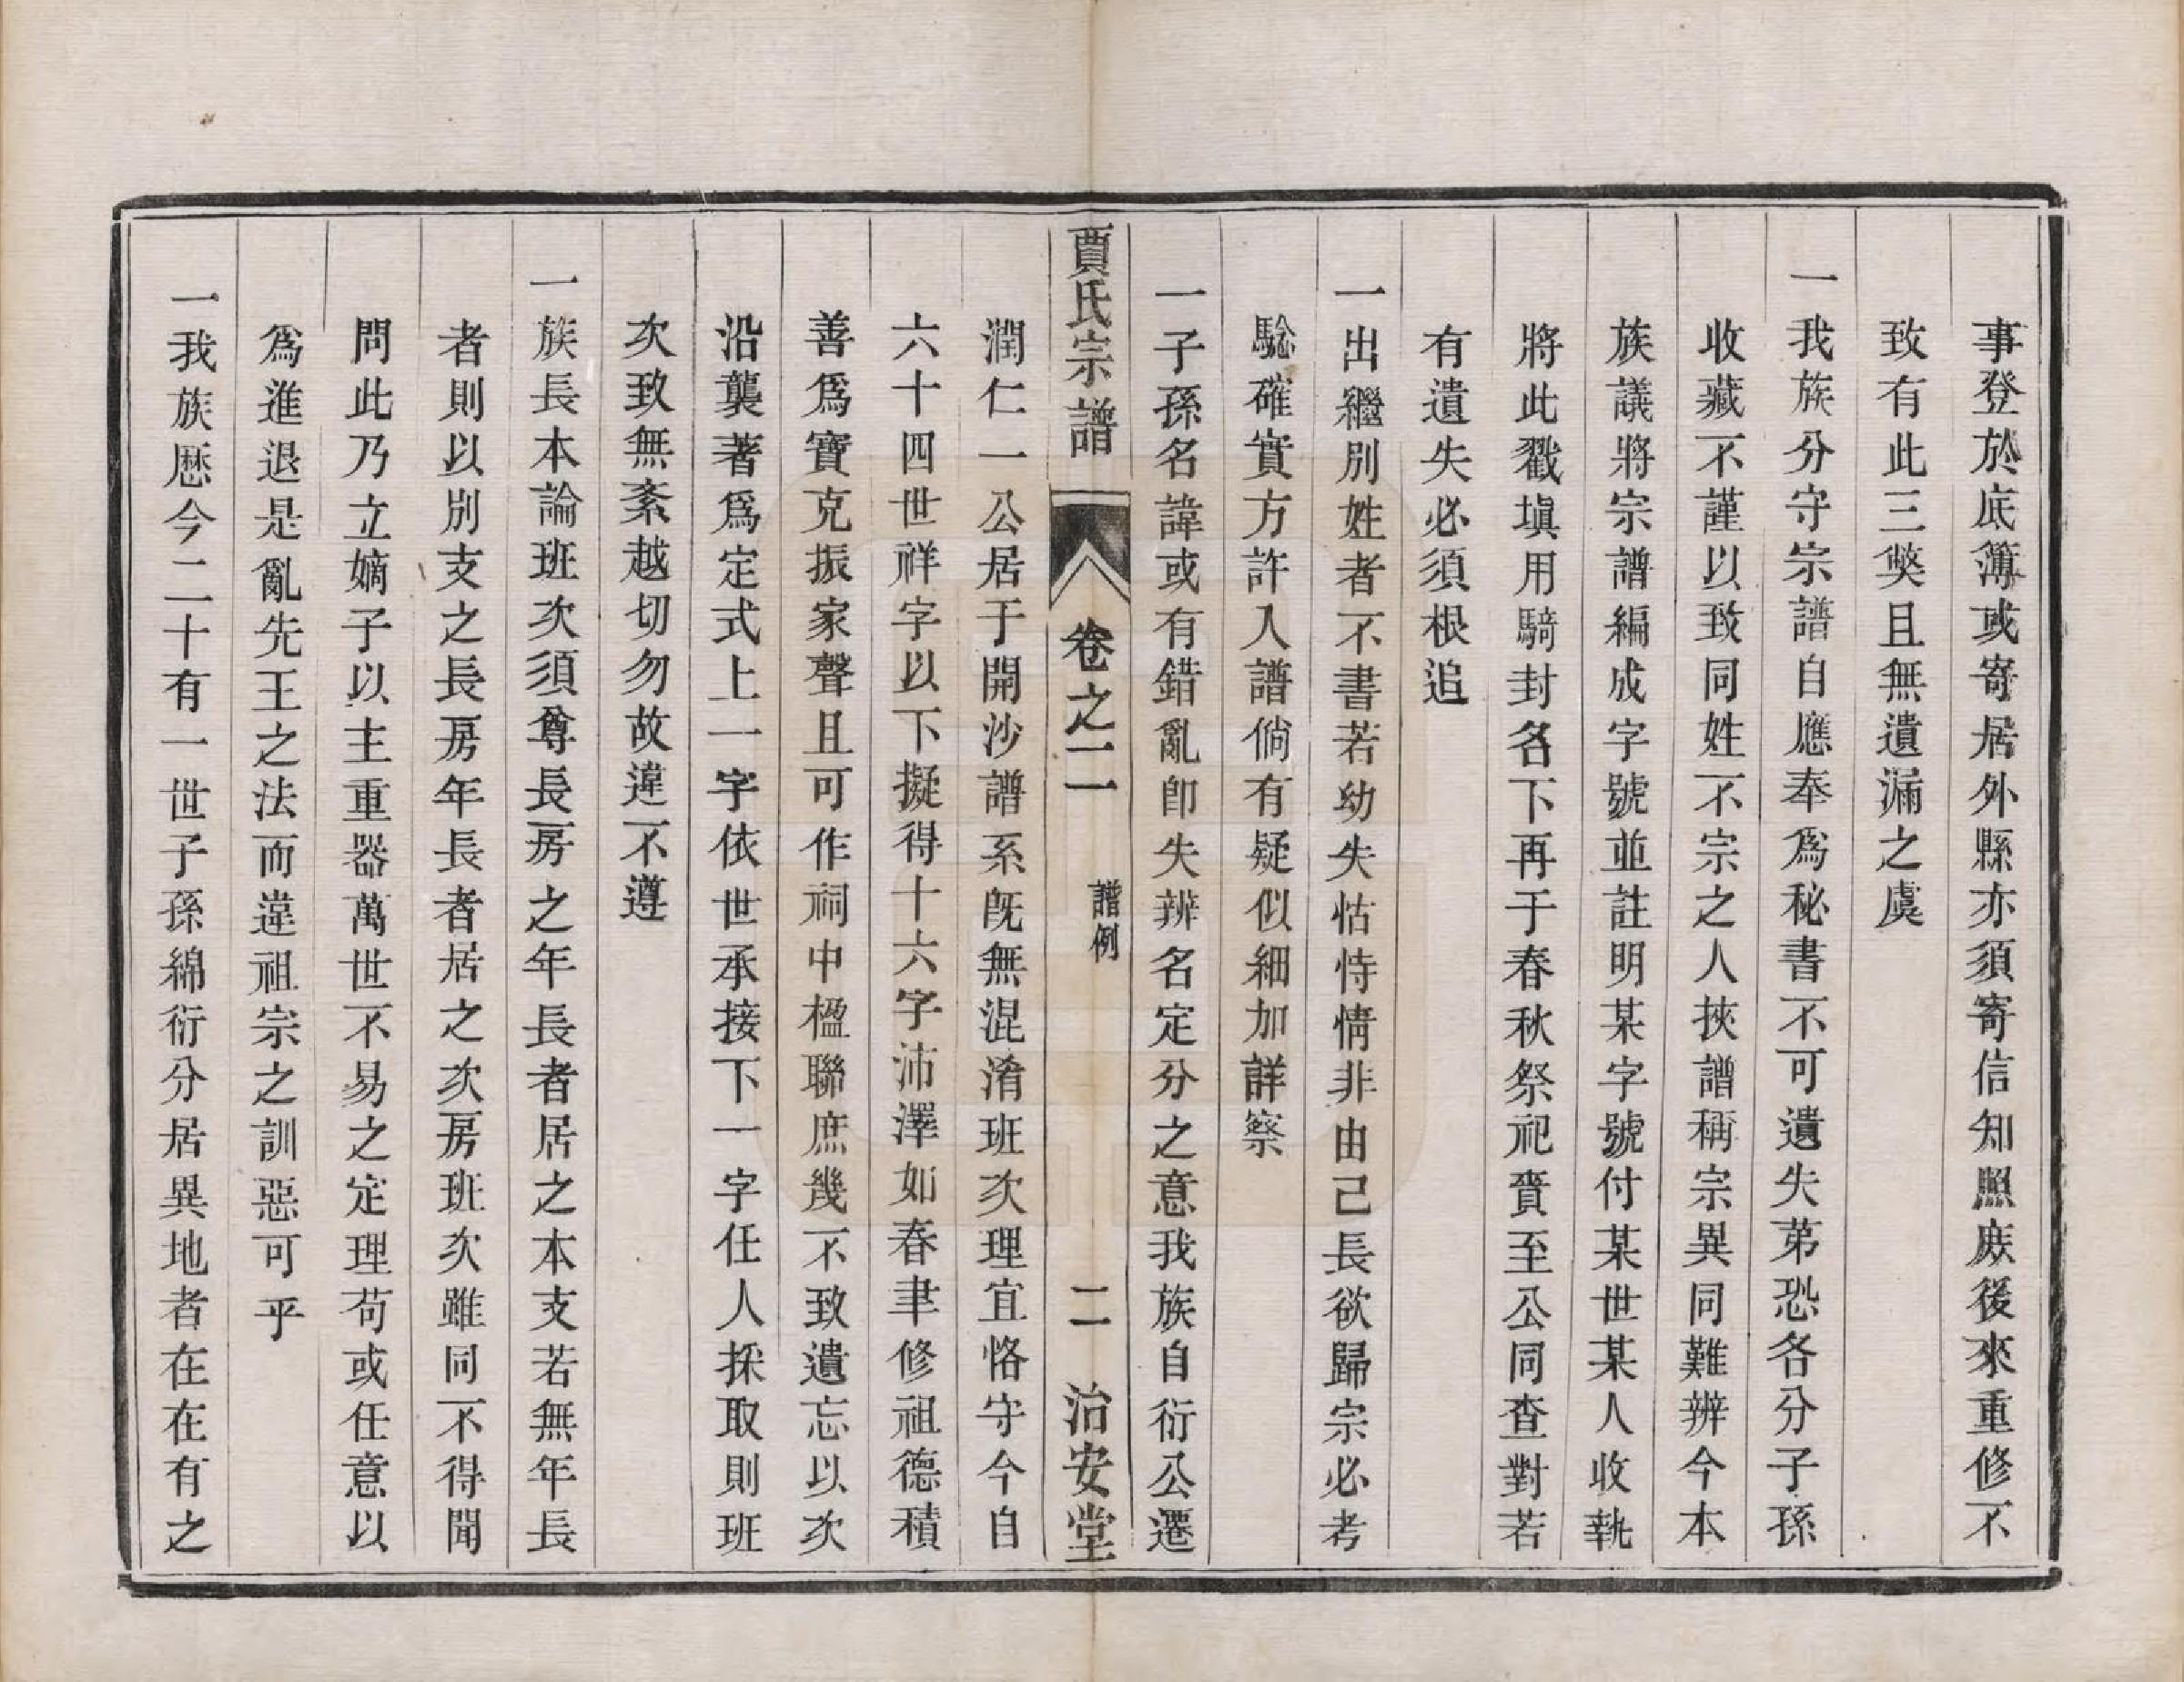 事登於底簿或寄居外縣亦須寄信知照族後來重修不
致有此三獘且無遺漏之虞
一我族分守宗譜自應奉爲秘書不可遺失苐恐各分子孫
收藏不謹以致同姓不宗之人挾譜稱宗異同難辨今本
族議將宗譜編成字號並註明某字號付某世某人收執
將此戳塡用騎封名下再于春秋祭祀賫至公同查對若
有遺失必須根追
一出繼別姓者不書若幼失怙恃情非由己長欲歸宗必考
騐確實方許入譜倘有疑似細加詳察
一子孫名諱或有錯亂卽失辨名定分之意我族自衍公遷
賈氏宗譜 卷之二 譜例 二 治安堂
潤仁一公居于開沙譜系旣無混淆班次理宜恪守今自
六十四世祥字以下擬得十六字沛澤如春聿修祖德積
善爲寶克振家聲且可作祠中楹聯庶幾不致遺忘以次
沿襲著爲定式上一字依世承接下一字任人採取則班
次致無紊越切勿故違不遵
一族長本論班次須尊長房之年長者居之本支若無年長
者則以別支之長房年長者居之次房班次雖同不得聞
問此乃立嫡子以主重器萬世不易之定理苟或任意以
爲進退是亂先王之法而違祖宗之訓惡可乎
一我族歷今二十有一世子孫綿衍分居異地者在在有之